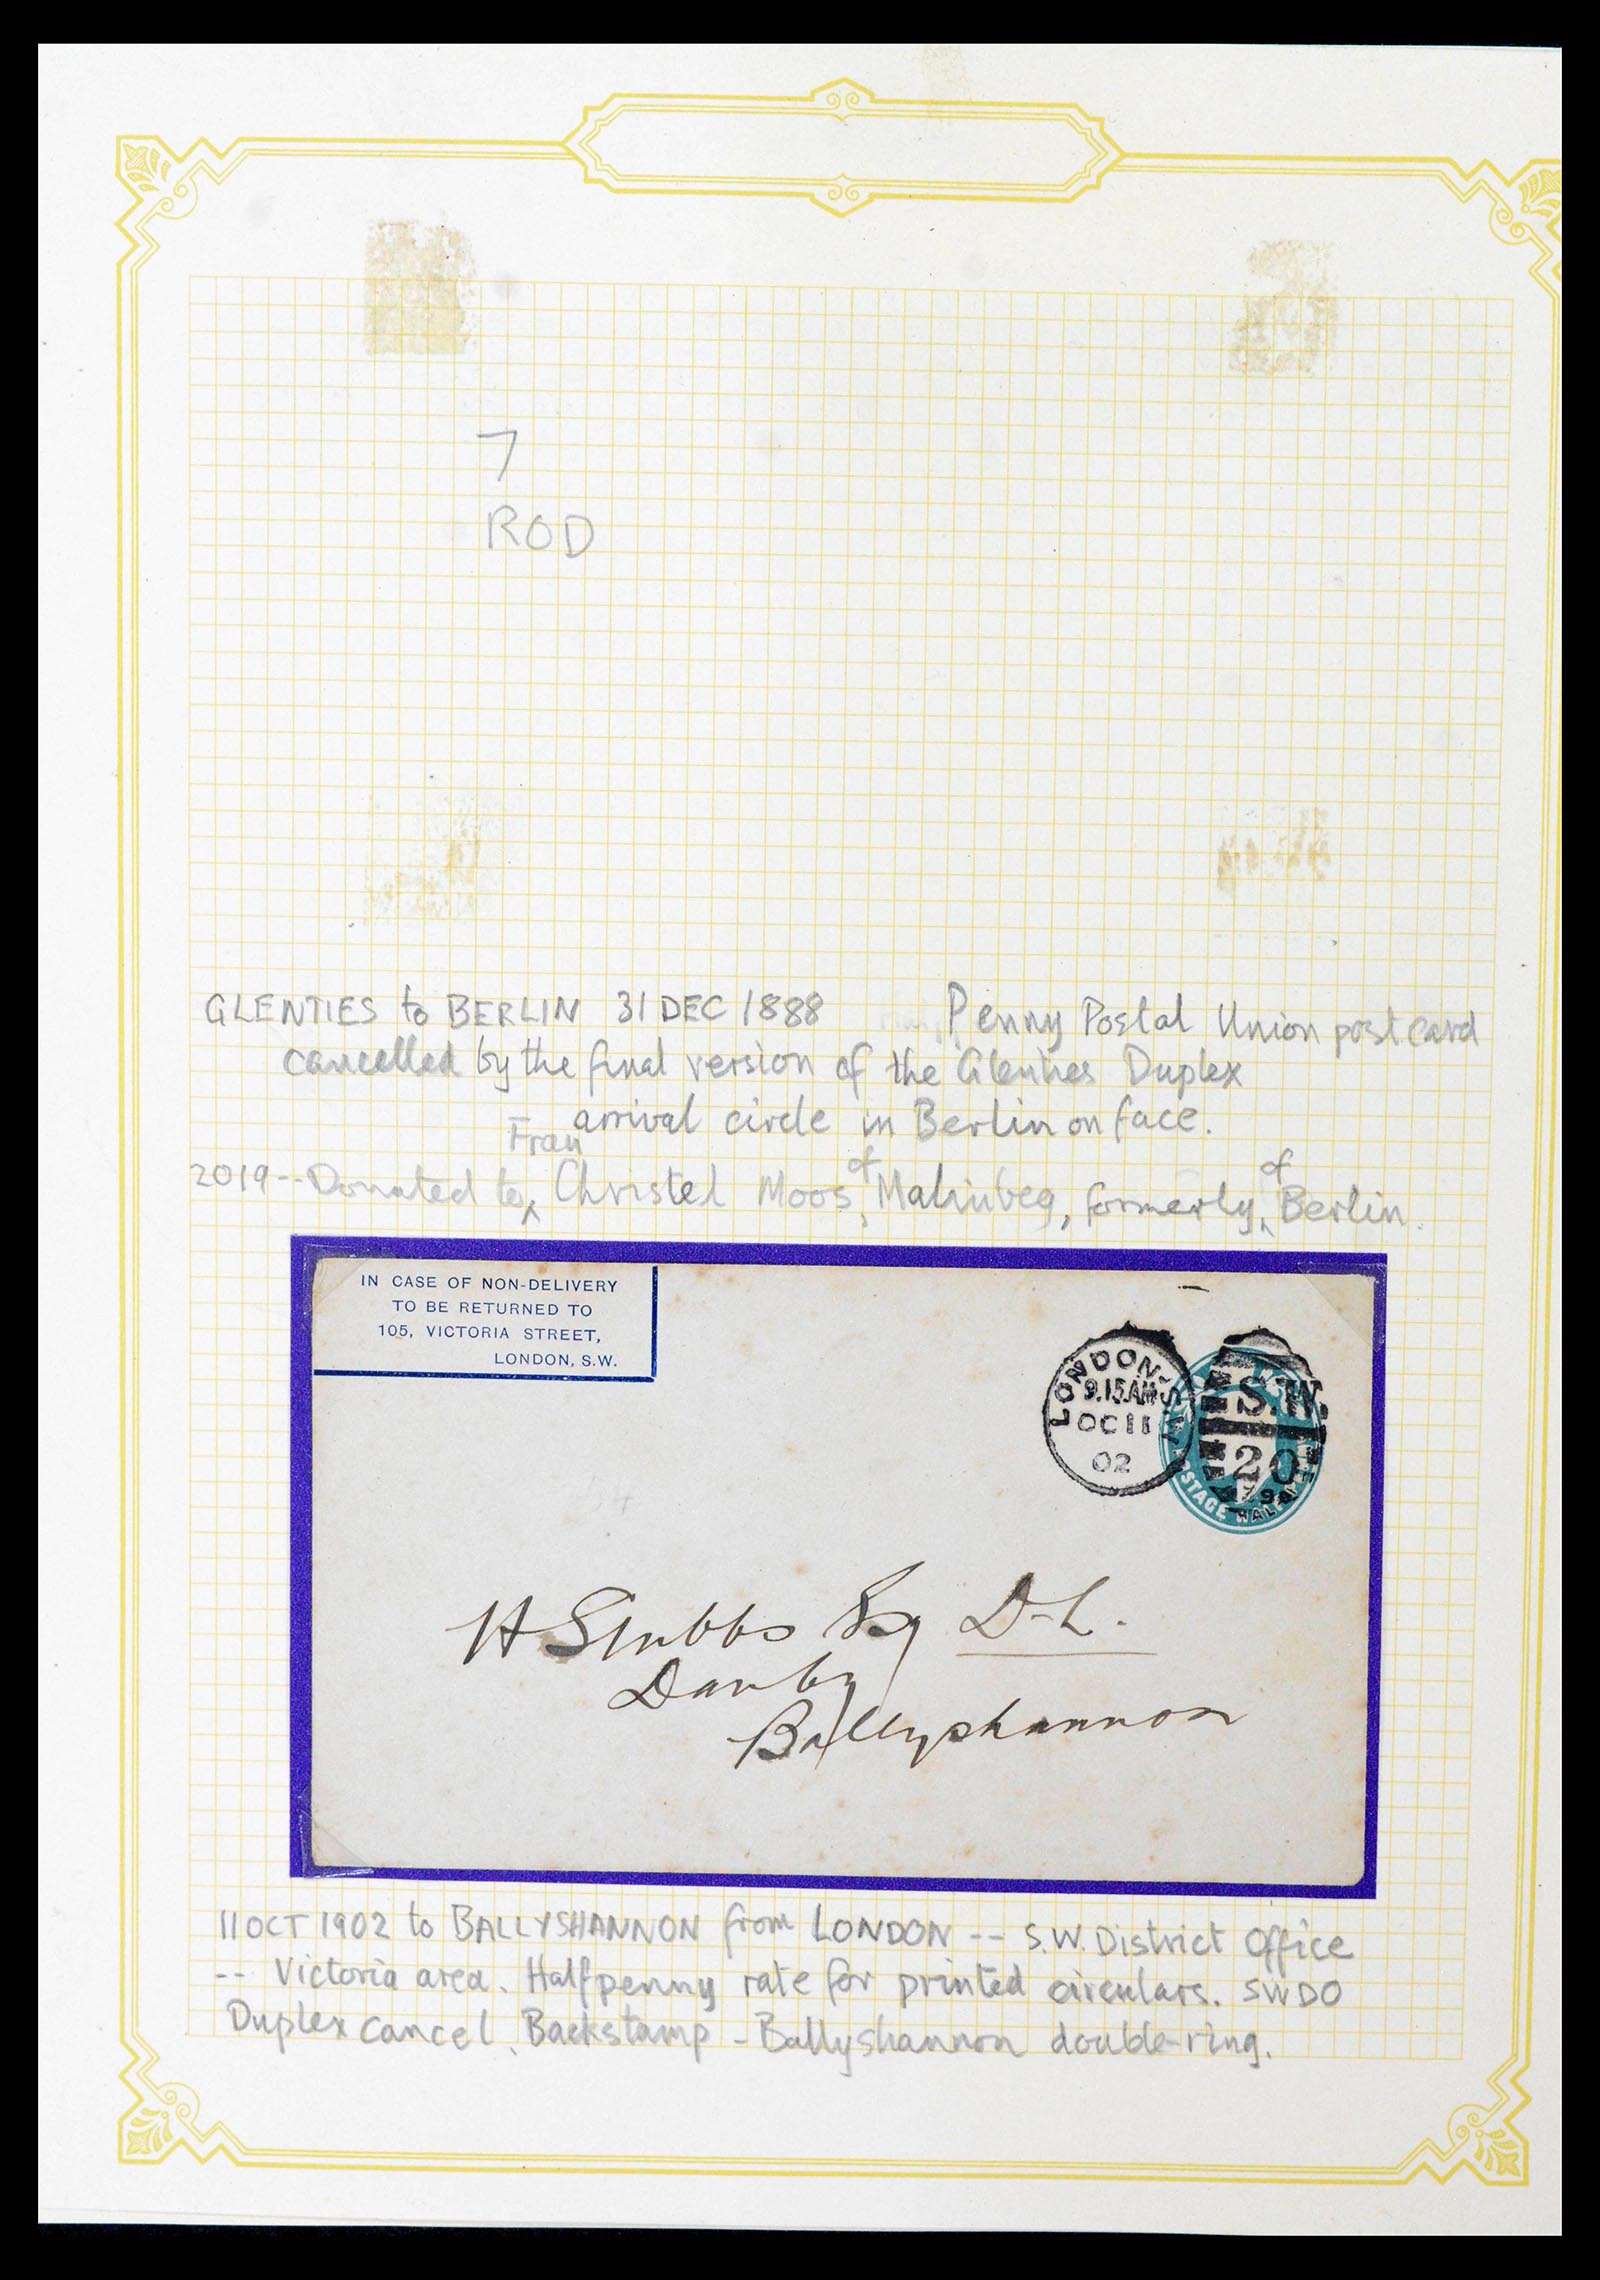 7
ROD
GLENTIES to BERLIN 31 DEC 1888 Penny Postal Union postcard
cancelled by the final version of the Glenties Duplex
arrival circle in Berlin on face.
Frau
2019 -- Donated to Christel Moos, of Malinbeg, formerly, of Berlin.
IN CASE OF NON-DELIVERY
TO BE RETURNED TO
105, VICTORIA STREET,
LONDON, S.W.
LONDON. S.W.
9.15AM
OC 11
02
S.W.
20
STAGE HALF
H Stubbs Esq D.L.
Danby
Ballyshannon
11 OCT 1902 to BALLYSHANNON from LONDON -- S.W. District Office
-- Victoria area. Halfpenny rate for printed circulars. SWDO
Duplex cancel. Backstamp - Ballyshannon double-ring.